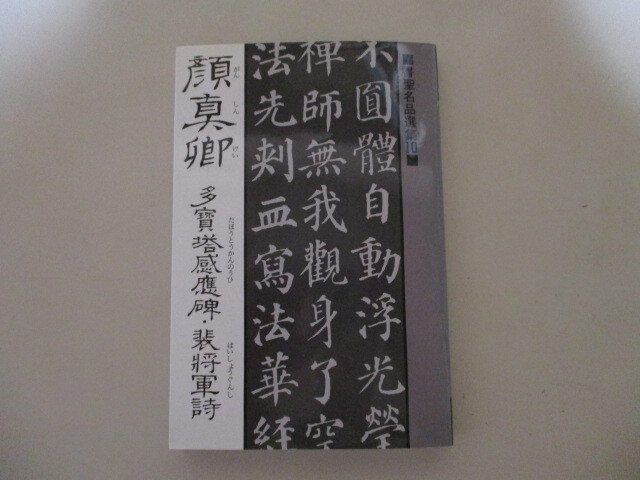 書聖名品選集10
不圓體自動浮光瑩
禪師無我觀身了空
法先刾血寫法華經
顔真卿
がん しん けい
多寶塔感應碑・裴將軍詩
たほうとうかんのうひ
はいしょうぐんし